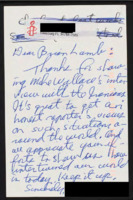 Dear Brian Lamb:
Thanks for show-
ing Mike Wallace's inter-
view with the Iranians
It's great to get an
honest reporter's views
on such situations a-
round the world, and
we appreciate your
to show us how
our world
is today. Keep it up.
Sincerely,